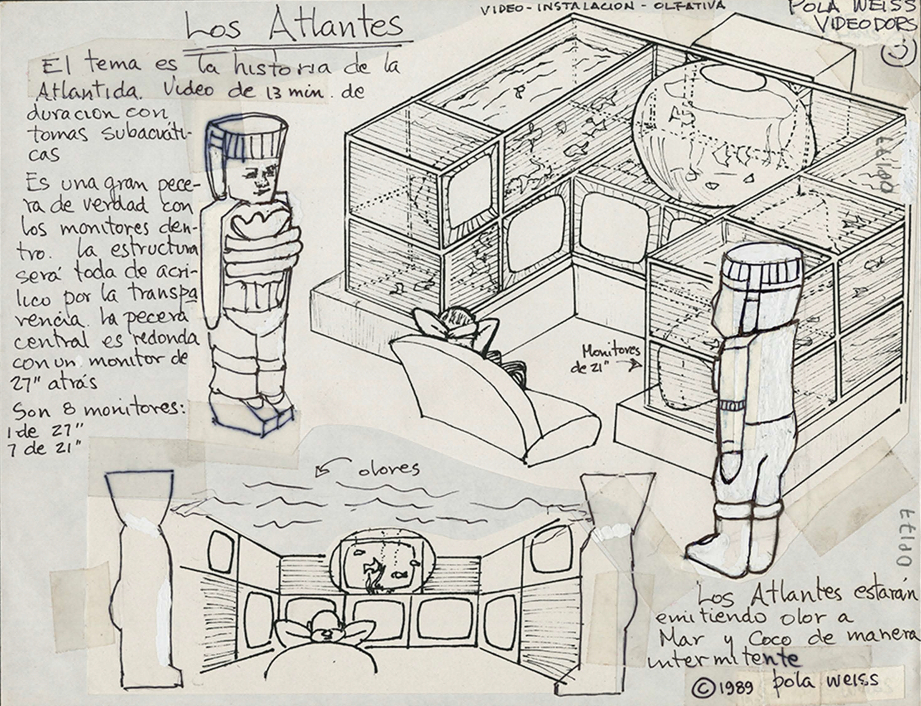 Los Atlantes
VIDEO-INSTALACION-OLFATIVA
POLA WEISS
VIDEODORS
El tema es la historia de la
Atlantida. Video de 13 min. de
duración con
tomas subacuáti-
cas
Es una gran pece-
ra de verdad con
los monitores den-
tro. la estructura
será toda de acrí-
lico por la transpa
rencia. la pecera
central es redonda
con un monitor de
27" atrás
Son 8 monitores:
1 de 27"
7 de 21"
Monitores
de 21"
olores
Los Atlantes estarán
emitiendo olor a
Mar y Coco de manera
intermitente
©1989 pola weiss